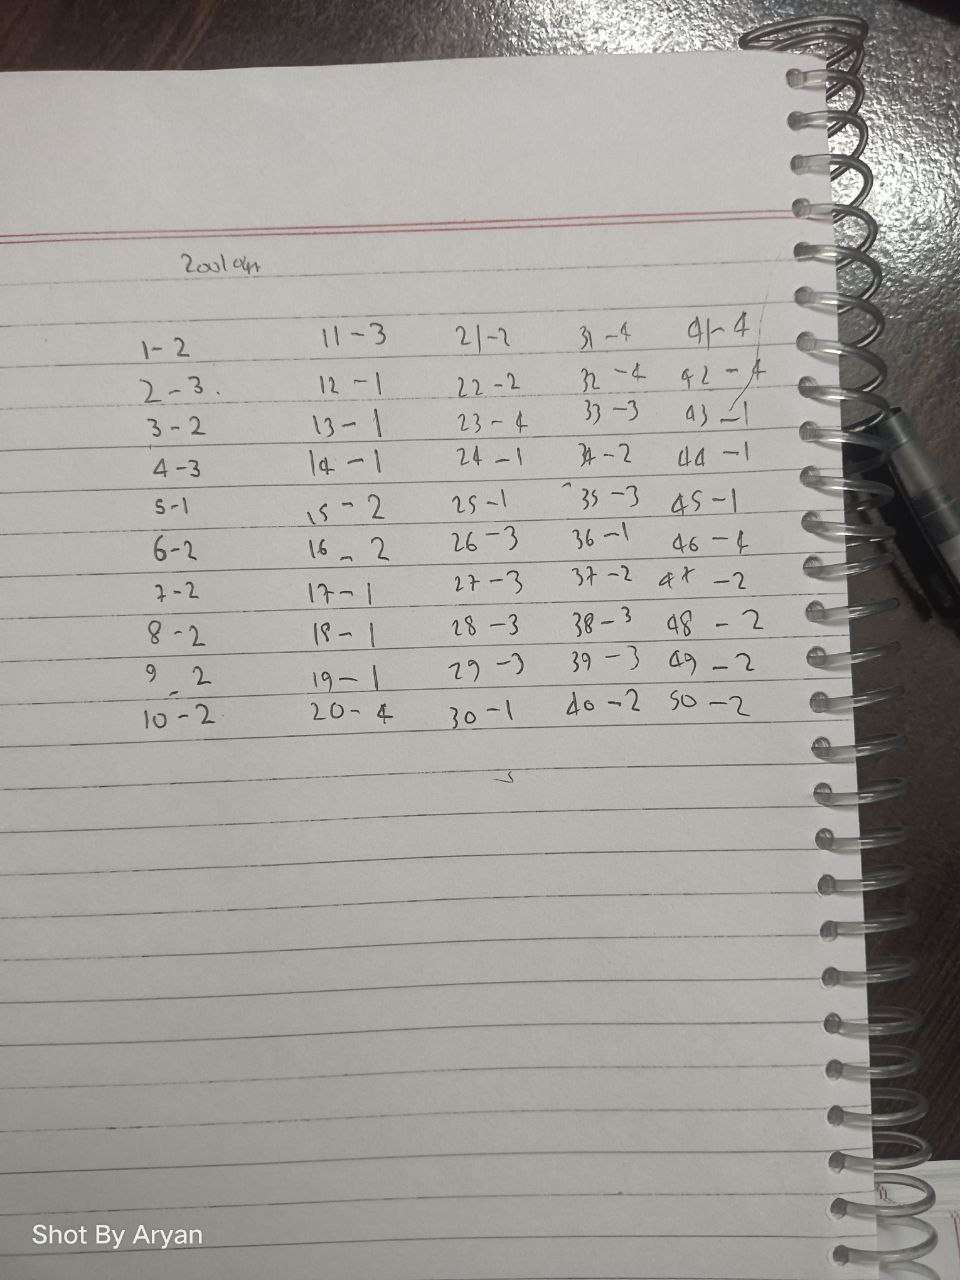 1-2 11-3 21-2 31-4 41-4
2-3. 12-1 22-2 32-4 42-4
3-2 13-1 23-4 33-3 43-1
4-3 14-1 24-1 34-2 44-1
5-1 15-2 25-1 35-3 45-1
6-2 16-2 26-3 36-1 46-4
7-2 17-1 27-3 37-2 47-2
8-2 18-1 28-3 38-3 48-2
9-2 19-1 29-3 39-3 49-2
10-2 20-4 30-1 40-2 50-2
Shot By Aryan